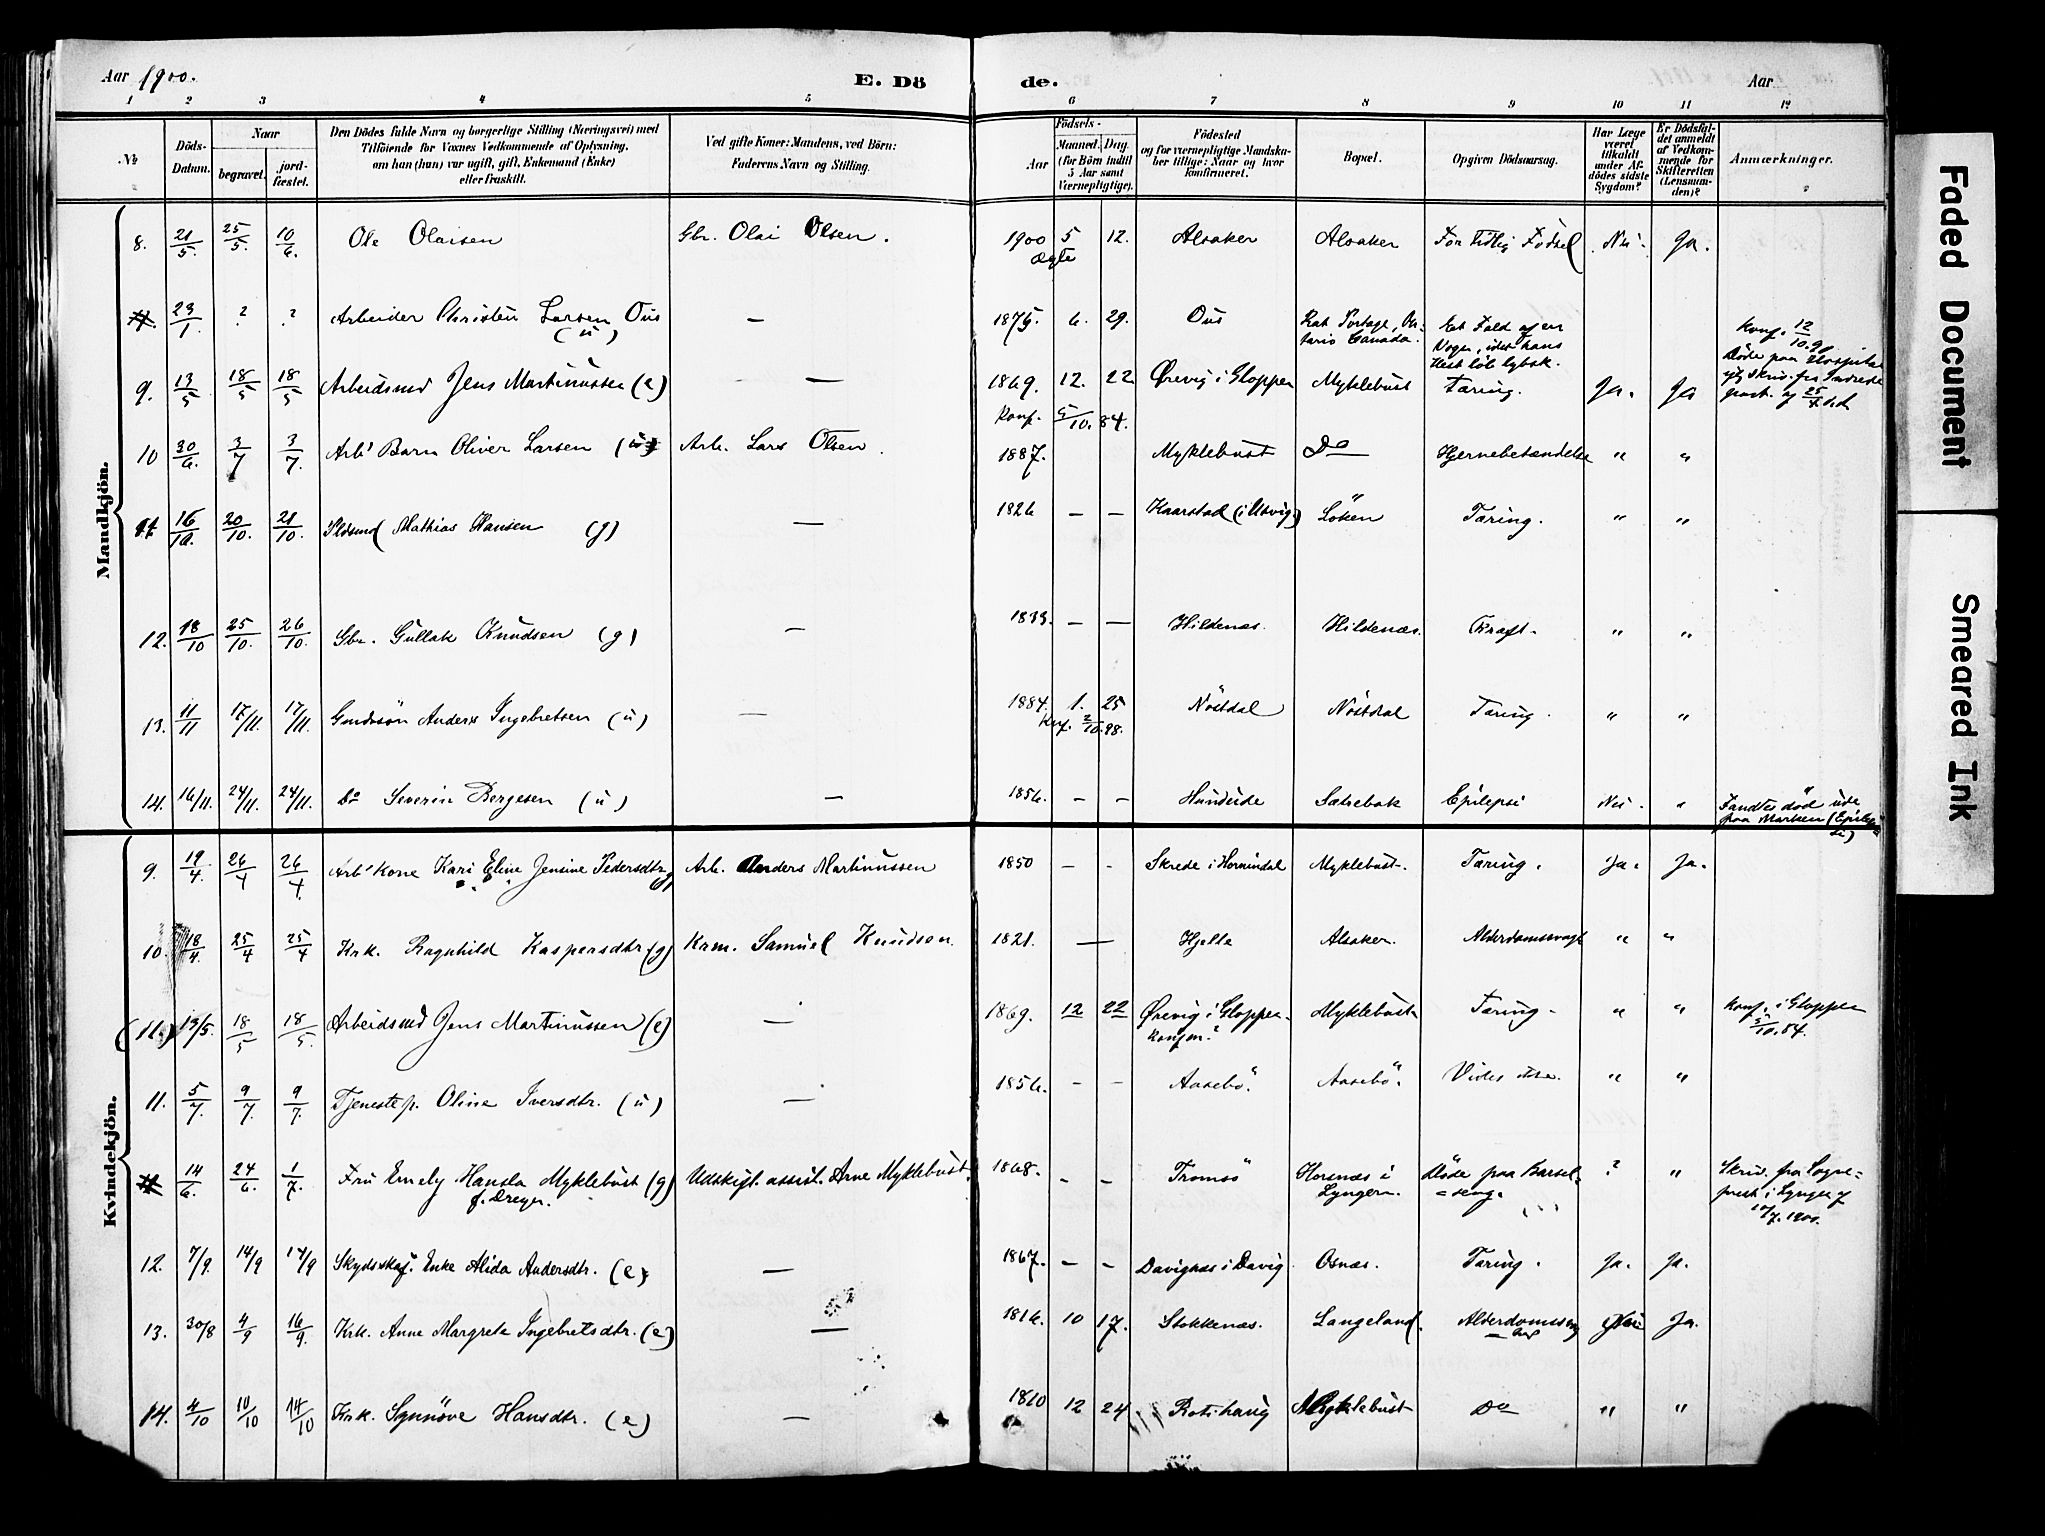 Aar 1900. E. Dö de. Aar
1 2 3 4 5 6 7 8 9 10 11 12
№
Döds-Datum.
Naar
begravet.
jord-fæstet.
Den Dödes fulde Navn og borgerlige Stilling (Næringsvei) med
Tilföiende for Voxnes Vedkommende af Oplysning,
om han (hun) var ugift, gift, Enkemand (Enke)
eller fraskilt.
Ved gifte Koner: Mandens, ved Börn:
Faderens Navn og Stilling.
Födsels-
Aar
Maaned. Dag.
(for Börn indtil
5 Aar samt
Værnepligtige).
Födested
og for værnepligtige Mandska-
ber tillige: Naar og hvor
konfirmeret.
Bopæl.
Opgiven Dödsaarsag.
Har Læge
været
tilkaldt
under Af-
dödes sidste
Sygdom?
Er Dödsfal-
det anmeldt
af Vedkom-
mende for
Skifteretten
(Lensman-
den)?
Anmærkninger.
Mandkjön.
8. 21/5 25/5. 10/6. Ole Olaisen Gbr. Olai Olsen. 1900 5 12. Alsaker Alsaker For tidlig Födsel Nei. Ja.
ægte
23/1. ? ? Arbeider Christen Larsen Ous (u) — 1875. 6. 29. Ous Rat Portage, On-
tario Canada. Et Fald af en
Vogn, idet hans
Hest löb løbsk. Konf. 12/10.90
Döde paa Hospital
9. 13/5 18/5 18/5 Arbeidsmd Jens Martinussen (e) — 1869. 12. 22 Ørevig i Gloppen Myklebust Tæring. Ja. Ja
Konf. 5/10.84.
10 30/6. 3/7 3/7. Arb' Barn Oliver Larsen (u) Arb. Lars Olsen. 1887. Myklebust Do Hjernebetændelse " "
11 16/10. 20/10. 21/10. Mathias Hansen (g) — 1826 — — Kaarstad (i Utvig) Löken Tæring. " "
12. 18/10 25/10. 26/10. Gbr. Gullak Knudsen (g) — 1833. — — Hildenæs. Hildenæs. Kræft. " "
13. 11/11 17/11. 17/11. Gmdssön Anders Ingebretsen (u) — 1884. 1. 25 Nöstdal Nöstdal Tæring. " "
Knf. 2/10.98.
14. 16/11. 24/11. 24/11. Do Severin Bergesen (u) — 1856. — — Hundeide Sætrebak Epilepsi Nei. " Fandtes död ude
paa Marken (Epilep-
si)
Kvindekjön.
9. 19/4. 26/4 26/4. Arb' Kone Kari Eline Jensine Pedersdtr (g) Arb. Anders Martinussen 1850 — - Skrede i Hornindal Myklebust. Tæring. Ja. Ja.
10. 18/4. 25/4 25/4 Krk. Ragnhild Kaspersdtr (g) Krm. Samuel Knudsen. 1821. — Hjelle Alsaker. Alderdomssvagh " "
(11.) 13/5. 18/5 18/5. Arbeidsmd Jens Martinussen (e) — 1869. 12 22 Ørevig i Gloppen. Myklebust. Tæring. " " Konf. i Gloppen
Konfm.? 5/10.84.
11. 5/7. 9/7. 9/7. Tjenestep. Oline Iversdtr. (u) — 1856. - - Aasebö. Aasebö. Vides ikke. " "
14/6. 24/6. 1/7. Fru Emely Hansla Myklebust (g) Udskigt. assist. Arne Myklebust. 1868. - - Tromsö Horsnæs i
Lyngen. Döde paa Barsel-
seng. ? " Skriv. fra Sogne-
prest i Lyngen af
10/7. 1900.
f. Dreyer.
12. 7/9. 14/9 14/9 Skydsskaf. Enke Alida Andersdtr. (e) — 1867. - - Davignæs i Davig Osnæs. Tæring. Ja. Ja.
13. 30/8 4/9 16/9. Krk. Anne Margrete Ingebretsdtr. (e) — 1816. 10 17. Stokkenæs. Langeland. Alderdomssvag
hed Nei Ja.
14. 4/10 10/10 14/10 Krk. Synnöve Hansdtr. (e) — 1810 12 24 Rotihaug Myklebust Do " "
Faded Document
Smeared Ink